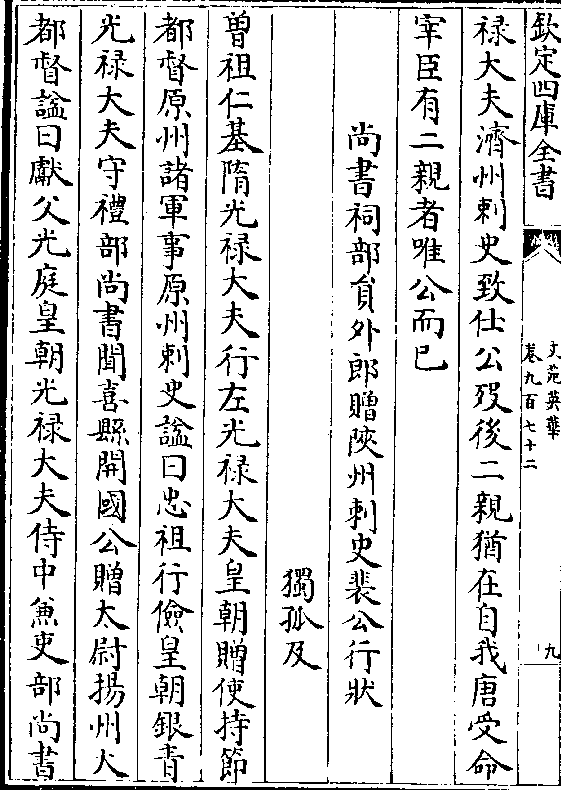 欽定四庫全書
文苑英華
卷九百七十二
九
禄大夫濟州刺史致仕公歿後二親猶在自我唐受命
宰臣有二親者唯公而已
尚書祠部員外郎贈陜州刺史裴公行狀
獨孤及
曽祖仁基隋光禄大夫行左光禄大夫皇朝贈使持節
都督原州諸軍事原州刺史諡曰忠祖行儉皇朝銀青
光禄大夫守禮部尚書聞喜縣開國公贈太尉揚州大
都督諡曰獻父光庭皇朝光禄大夫侍中兼吏部尚書